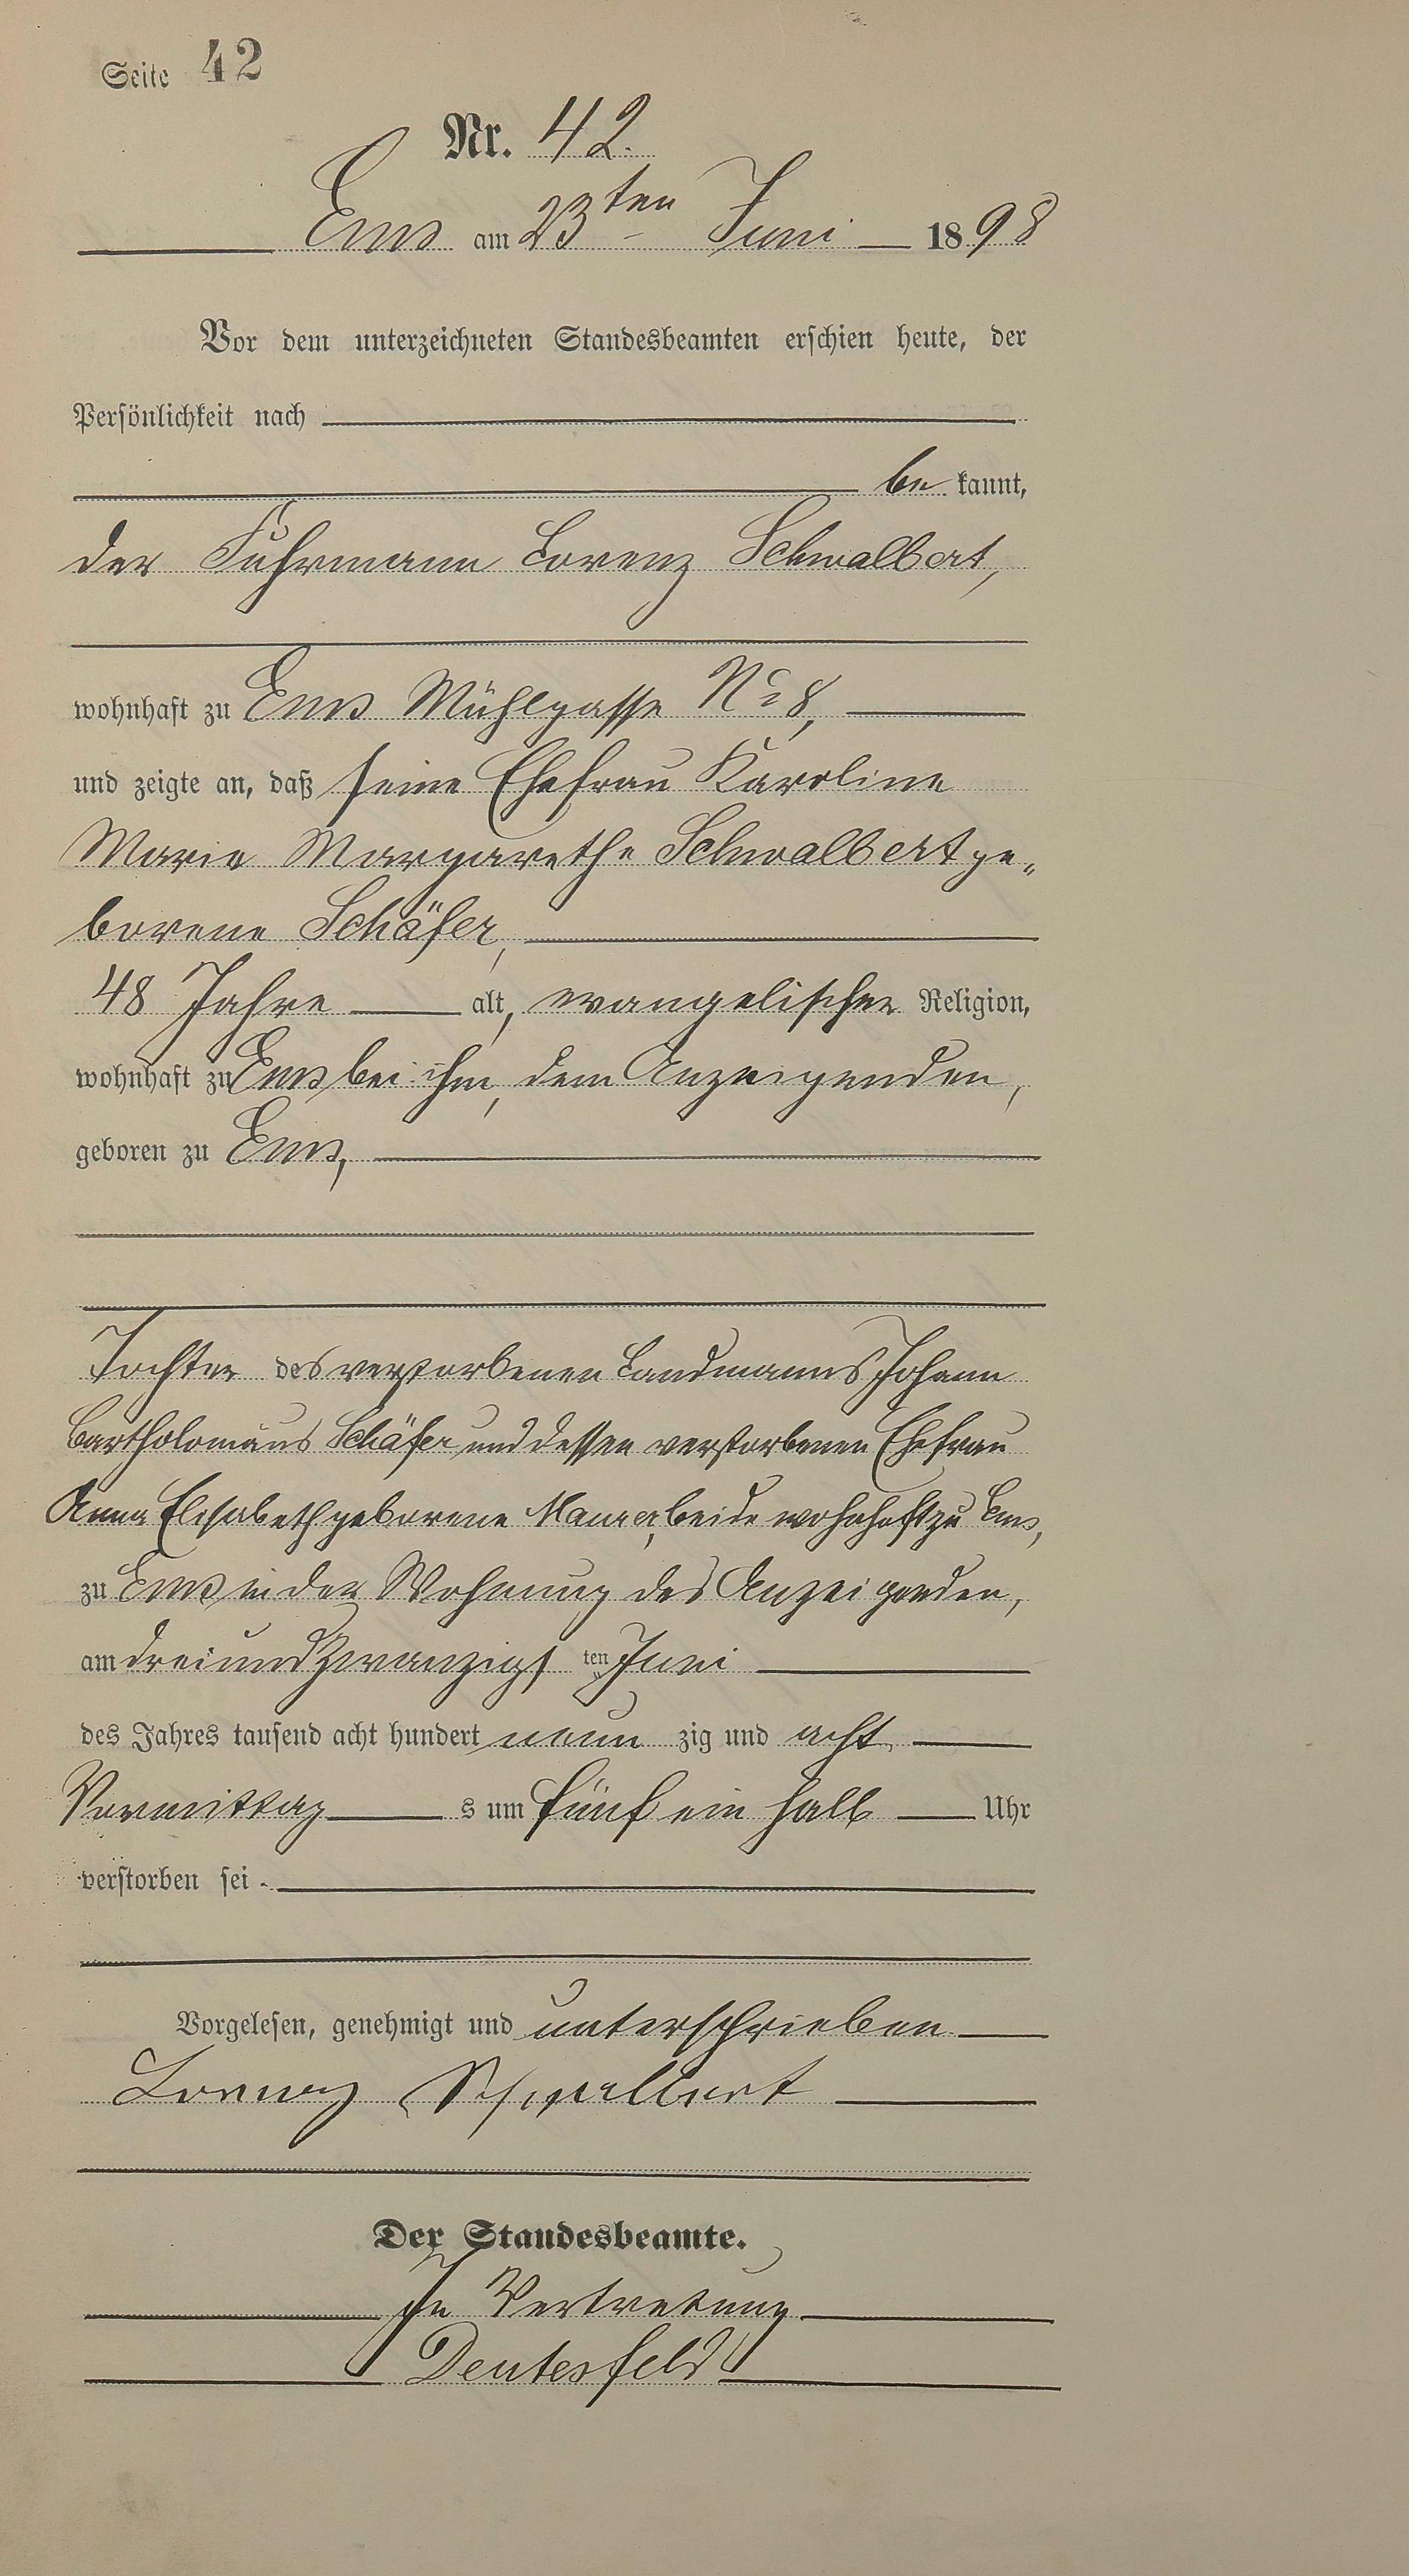 Seite 42
Nr. 42.
Ems am 23ten Juni 1898
Vor dem unterzeichneten Standesbeamten erschien heute, der
Persönlichkeit nach
be kannt,
der Fuhrmann Lorenz Schwalbert,
wohnhaft zu Ems Mühlgasse No 8,
und zeigte an, daß seine Ehefrau Karoline
Marie Margarethe Schwalbert ge„
borene Schäfer,
48 Jahre alt, evangelischer Religion,
wohnhaft zu Ems bei ihm, dem Anzeigenden,
geboren zu Ems,
Tochter des verstorbenen Landmanns Johann
Bartholomäus Schäfer und dessen verstorbenen Ehefrau
Anna Elisabeth geborene Maurer, beide wohnhaft zu Ems,
zu Ems in der Wohnung des Anzeigenden,
am dreiundzwanzigs ten Juni
des Jahres tausend acht hundert neun zig und acht
Vormittag s um fünf ein halb Uhr
verstorben sei.
Vorgelesen, genehmigt und unterschrieben
Lorenz Schwalbert
Der Standesbeamte.
In Vertretung
Deutesfeld